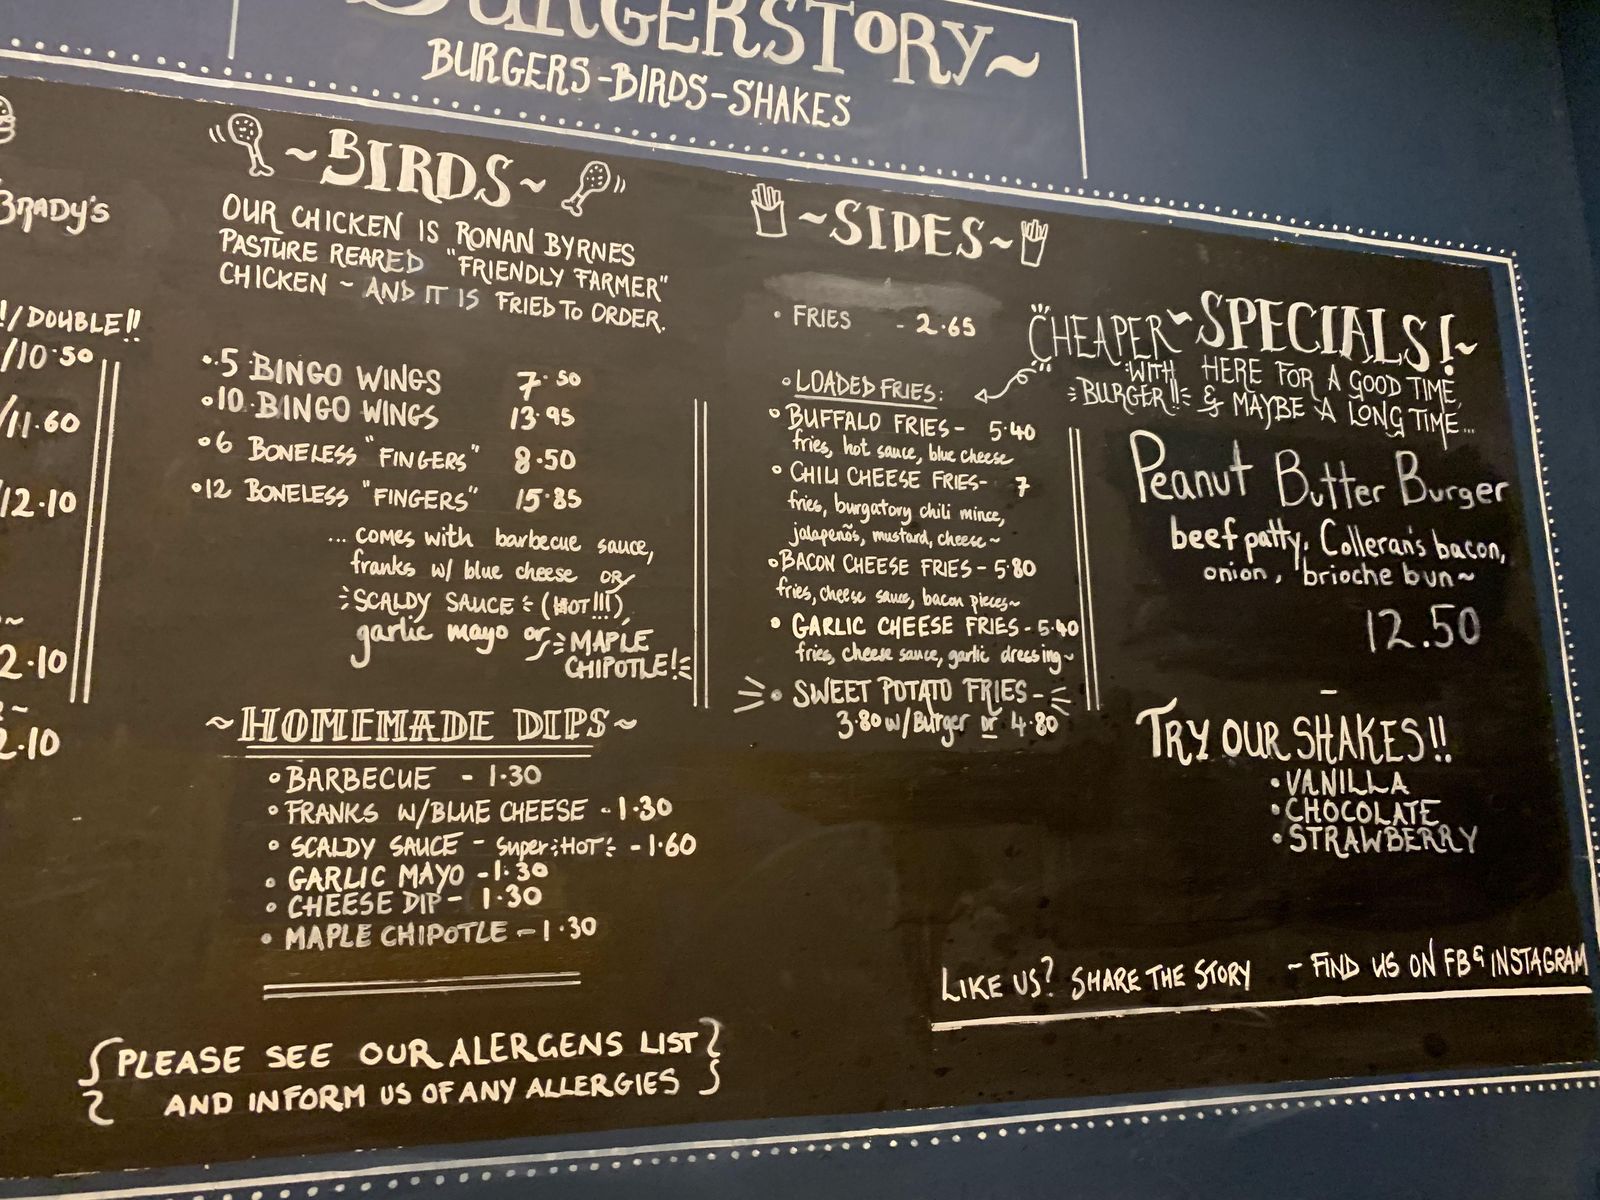 BURGERSTORY~
BURGERS-BIRDS-SHAKES
BRADY'S
!/DOUBLE!!
/10.50
/11.60
/12.10
2.10
2.10
~BIRDS~
OUR CHICKEN IS RONAN BYRNES
PASTURE REARED "FRIENDLY FARMER"
CHICKEN ~ AND IT IS FRIED TO ORDER.
•5 BINGO WINGS 7.50
•10 BINGO WINGS 13.95
•6 BONELESS "FINGERS" 8.50
•12 BONELESS "FINGERS" 15.85
... comes with barbecue sauce,
franks w/ blue cheese or
SCALDY SAUCE (HOT!!!),
garlic mayo or MAPLE
CHIPOTLE!
~HOMEMADE DIPS~
•BARBECUE - 1.30
•FRANKS W/BLUE CHEESE - 1.30
• SCALDY SAUCE - super HOT - 1.60
• GARLIC MAYO - 1.30
• CHEESE DIP - 1.30
• MAPLE CHIPOTLE - 1.30
{PLEASE SEE OUR ALERGENS LIST}
AND INFORM US OF ANY ALLERGIES
~SIDES~
• FRIES - 2.65
•LOADED FRIES:
•BUFFALO FRIES- 5.40
fries, hot sauce, blue cheese
• CHILI CHEESE FRIES- 7
fries, burgatory chili mince,
jalapenõs, mustard, cheese~
•BACON CHEESE FRIES - 5.80
fries, cheese sauce, bacon pieces~
• GARLIC CHEESE FRIES - 5.40
fries, cheese sauce, garlic dressing~
• SWEET POTATO FRIES -
3.80 w/Burger or 4.80
CHEAPER
WITH
BURGER!!
~SPECIALS!~
HERE FOR A GOOD TIME,
& MAYBE A LONG TIME...
Peanut Butter Burger
beef patty, Colleran's bacon,
onion, brioche bun~
12.50
TRY OUR SHAKES!!
•VANILLA
•CHOCOLATE
•STRAWBERRY
LIKE US? SHARE THE STORY ~ FIND US ON FB & INSTAGRAM